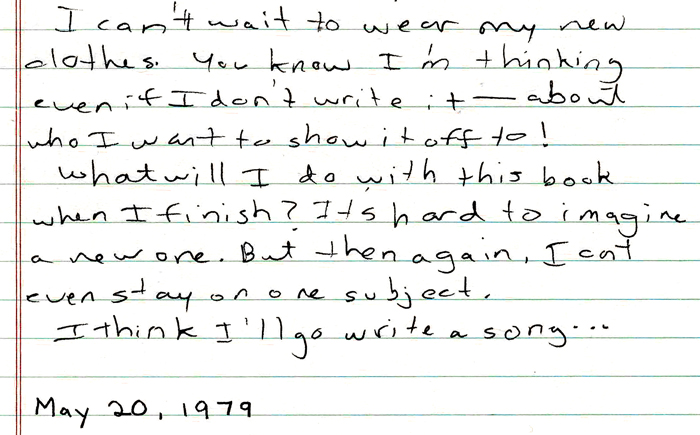 I can't wait to wear my new
clothes. You know I'm thinking
even if I don't write it — about
who I want to show it off to!
What will I do with this book
when I finish? It's hard to imagine
a new one. But then again, I can't
even stay on one subject.
I think I'll go write a song...
May 20, 1979